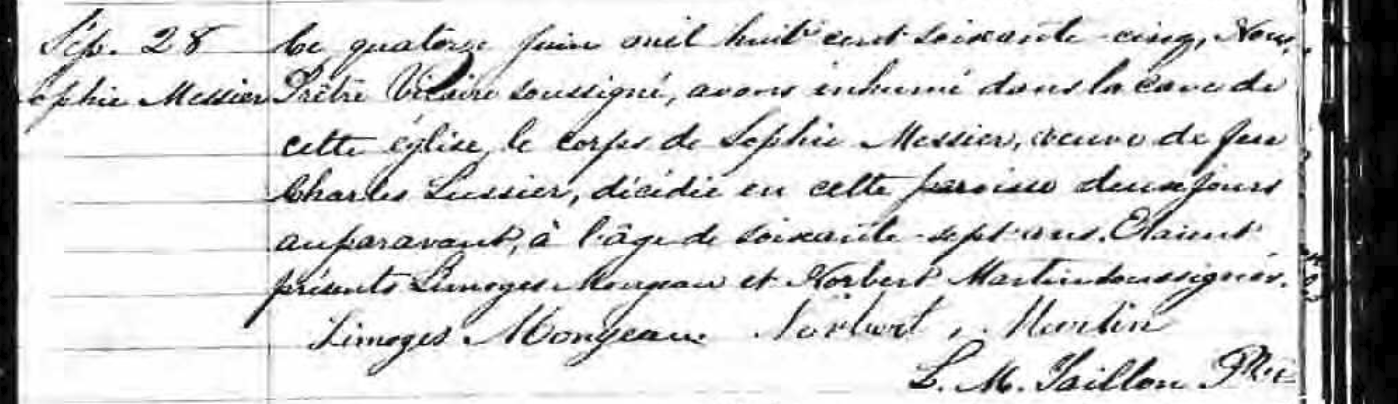 Sép. 28 Le quatorze juin mil huit cent soixante-cinq, Nous,
Sophie Messier Prêtre Vicaire soussigné, avons inhumé dans la cave de
cette église, le corps de Sophie Messier, veuve de feu
Charles Lussier, décédée en cette paroisse deux jours
auparavant, à l'âge de soixante-sept ans. Etaient
présents Limoges Mongeau et Norbert Martin soussignés.
Limoges Mongeau Norbert Martin
L. M. Taillon Ptre